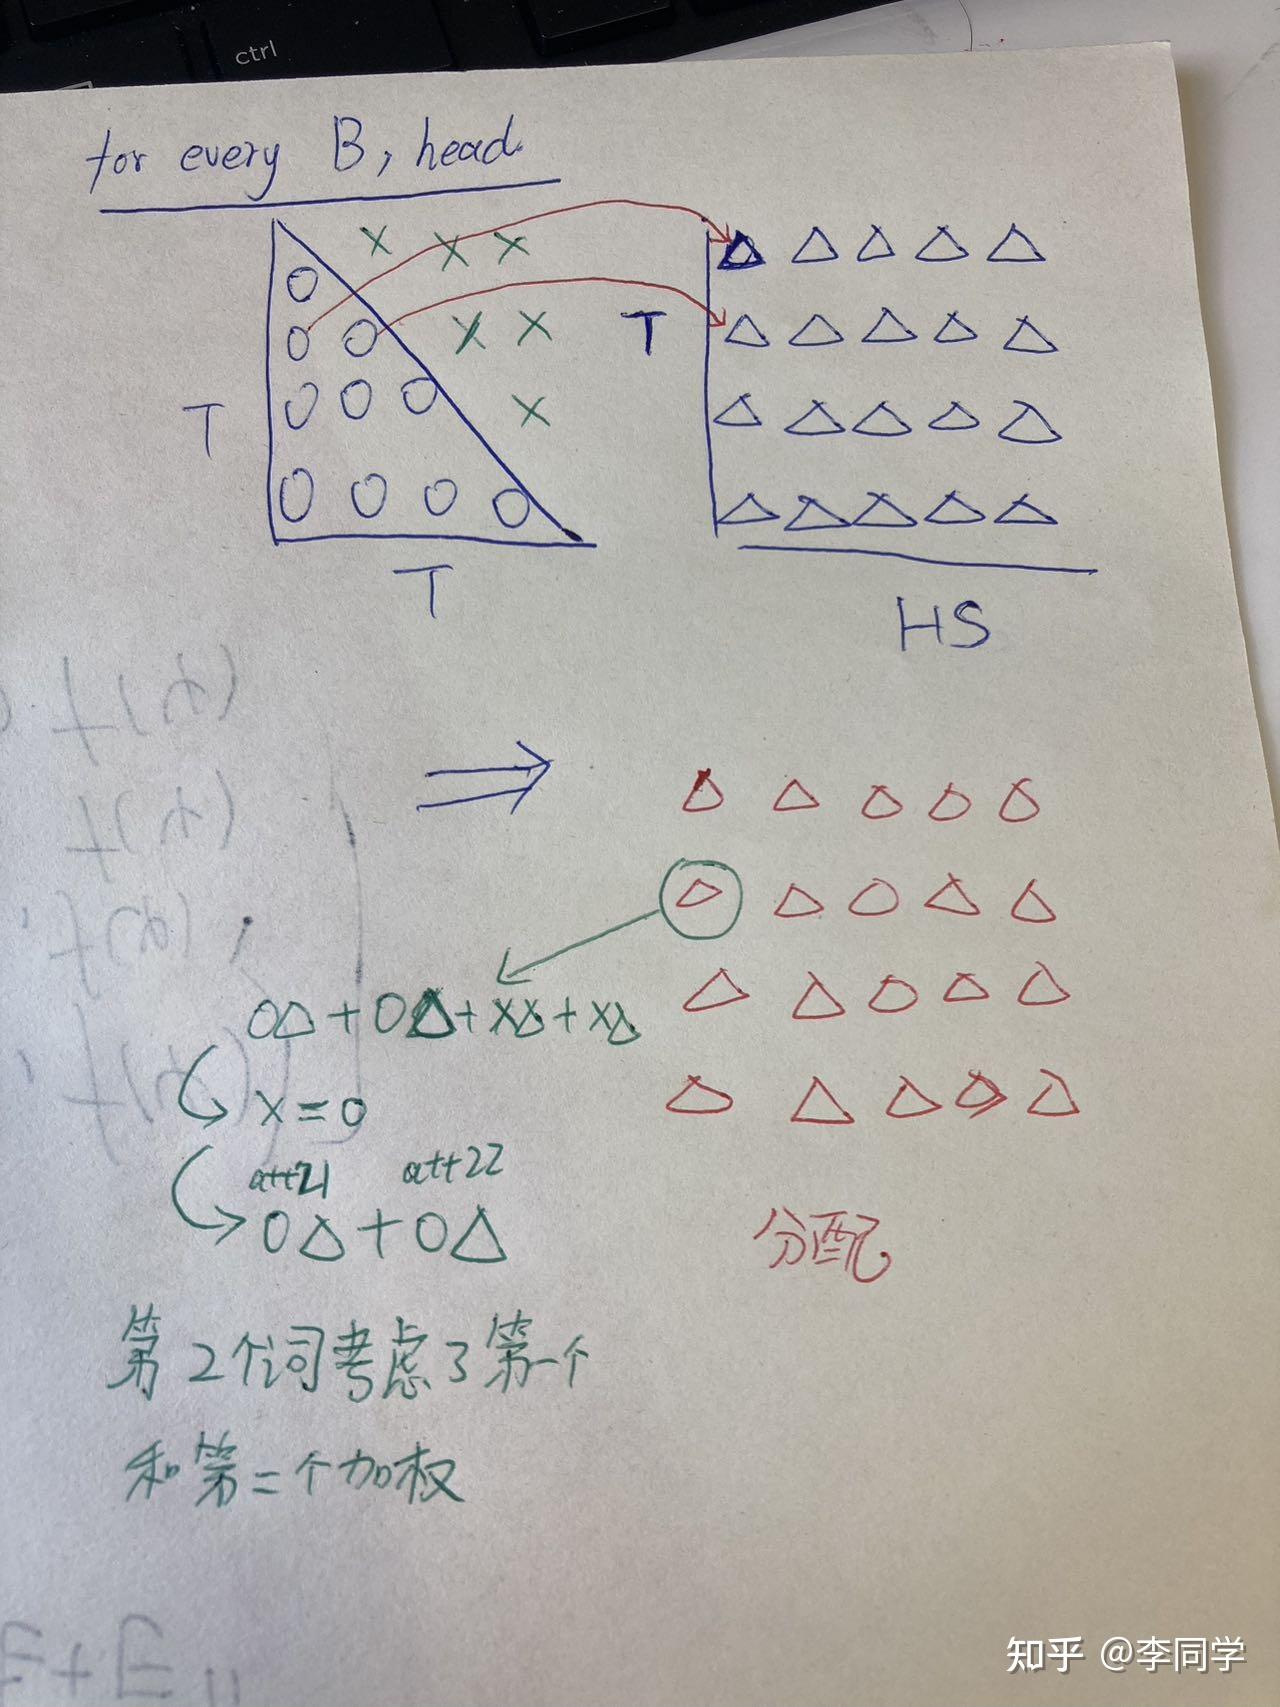 ctrl
for every B, head
X X X
O
O O X X
O O O X
O O O O
T
T
T
△ △ △ △ △
△ △ △ △ △
△ △ △ △ △
△ △ △ △ △
HS
⇒
△ △ △ △ △
△ △ △ △ △
△ △ △ △ △
△ △ △ △ △
O△+O△+X△+X△
X=0
att21 att22
O△+O△
分配
第2个词考虑了第一个
和第二个加权
知乎 @李同学